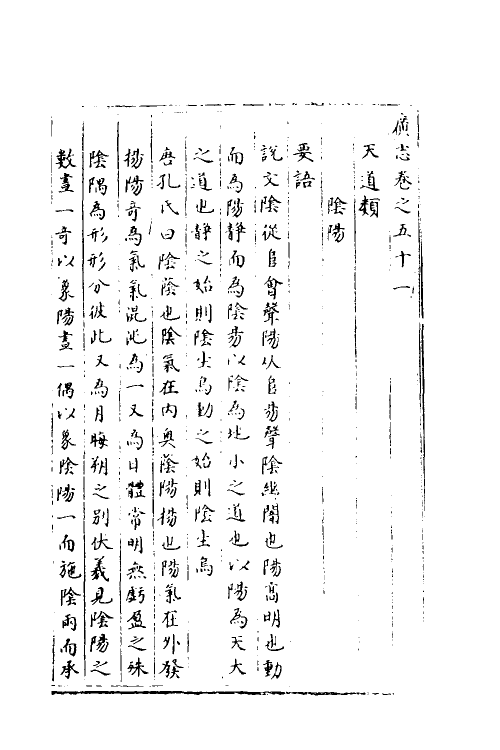 廣志卷之五十一
天道類
陰陽
要語
說文陰從𨸏會聲陽从𨸏昜聲陰幽闇也陽高明也動
而為陽靜而為陰昜以陰為地小之道也以陽為天大
之道也靜之始則陰生焉動之始則陰生焉
唐孔氏曰陰蔭也陰氣在內奧蔭陽揚也陽氣在外發
揚陽奇為氣氣混沌為一又為日體常明無虧盈之殊
陰隅為形形分彼此又為月晦朔之別伏羲見陰陽之
數畫一奇以象陽畫一偶以象陰陽一而施陰兩而承